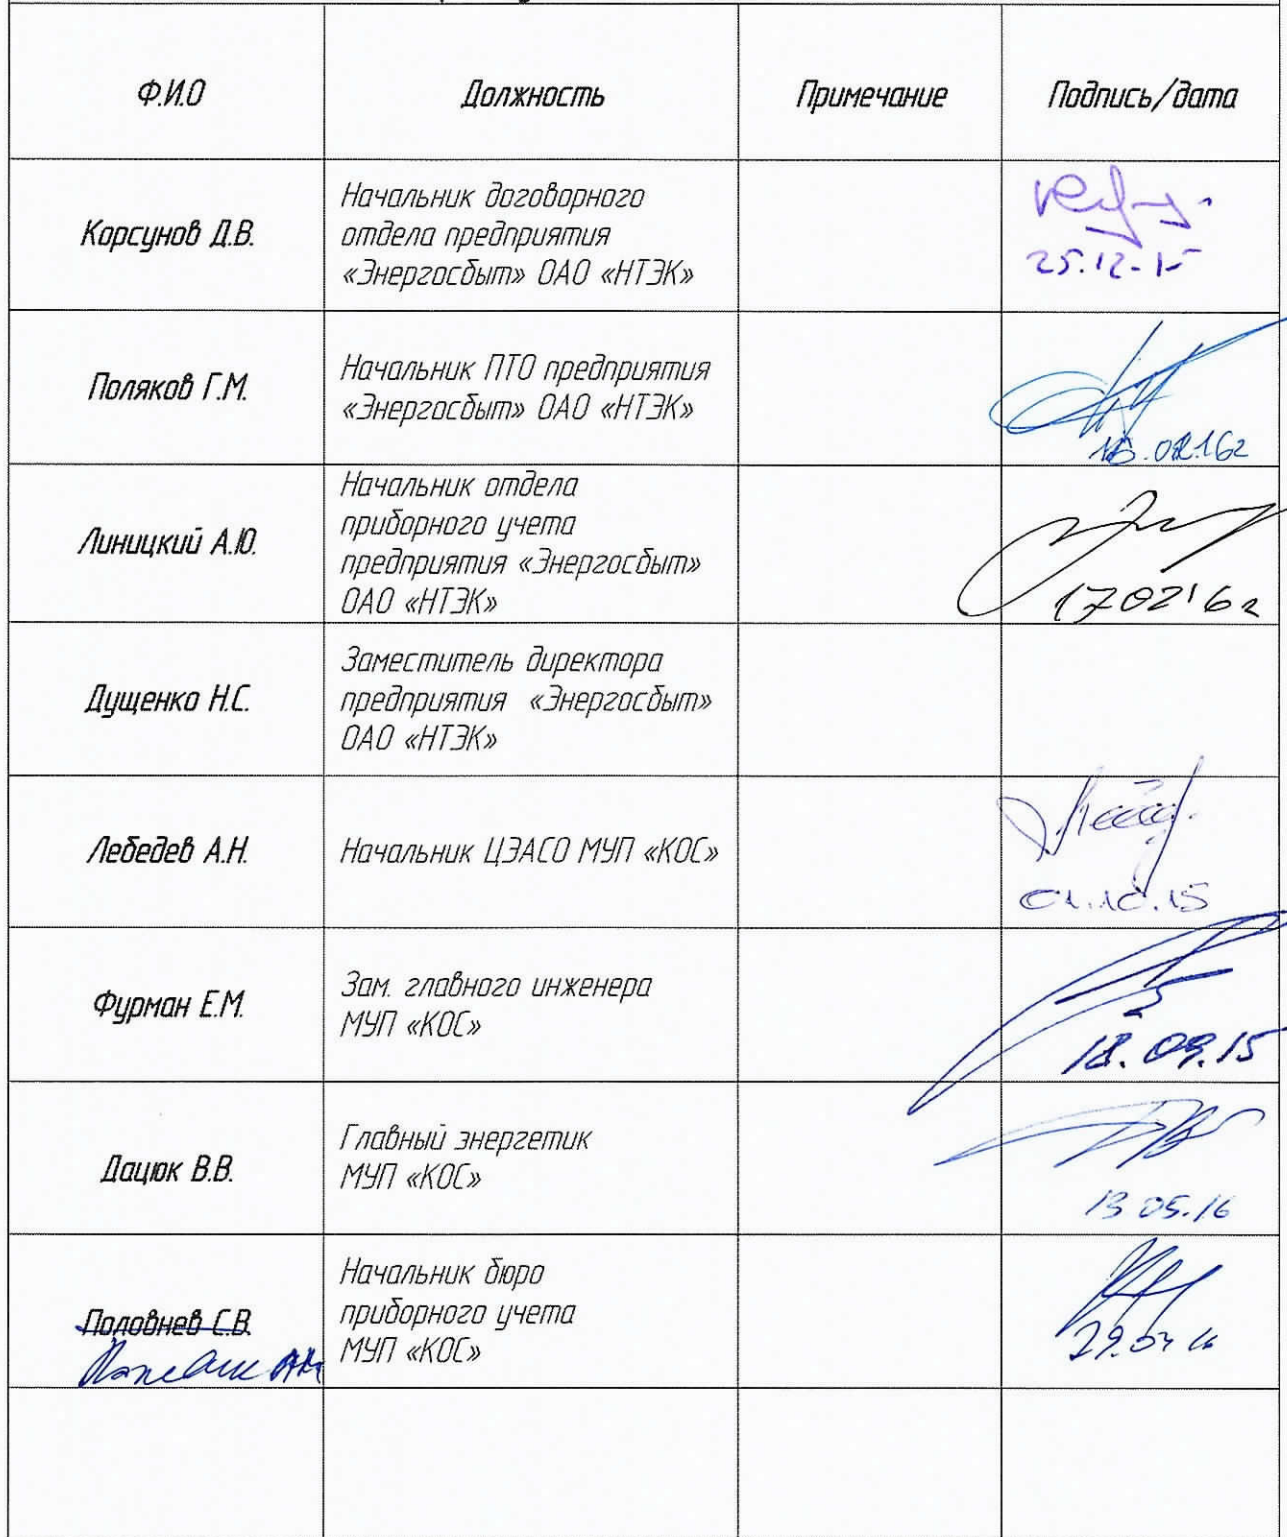 Ф.И.О
Должность
Примечание
Подпись/дата
Корсунов Д.В.
Начальник договорного
отдела предприятия
«Энергосбыт» ОАО «НТЭК»
25.12.15
Поляков Г.М.
Начальник ПТО предприятия
«Энергосбыт» ОАО «НТЭК»
Линицкий А.Ю.
Начальник отдела
приборного учета
предприятия «Энергосбыт»
ОАО «НТЭК»
17.02.16г
Дущенко Н.С.
Заместитель директора
предприятия «Энергосбыт»
ОАО «НТЭК»
Лебедев А.Н.
Начальник ЦЭАСО МУП «КОС»
01.10.15
Фурман Е.М.
Зам. главного инженера
МУП «КОС»
18.09.15
Дацюк В.В.
Главный энергетик
МУП «КОС»
13 05.16
Половнев С.В.
Начальник бюро
приборного учета
МУП «КОС»
29.04 16